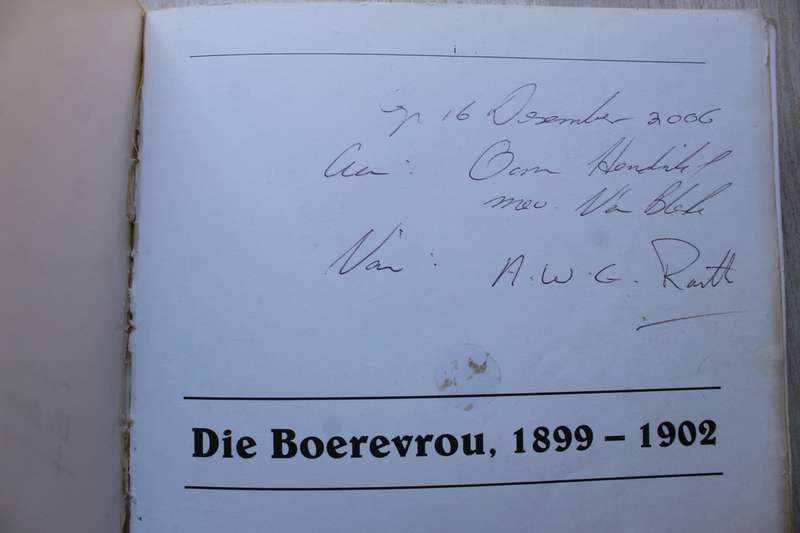 i
Op 16 Desember 2006
Aan: Oom Hendrik &
mev. Van
Van: A.W.G. Raath
Die Boerevrou, 1899 – 1902